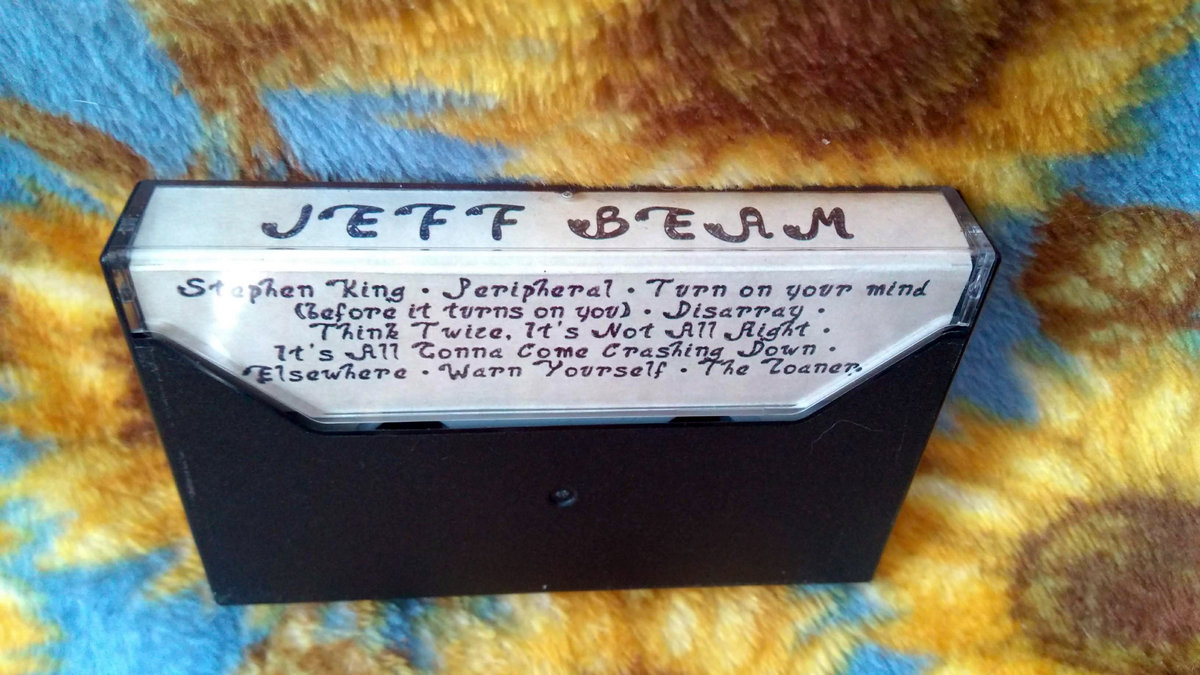 JEFF BEAM
Stephen King • Peripheral • Turn on your mind
(before it turns on you) • Disarray •
Think Twice, It's Not All Right •
It's All Gonna Come Crashing Down •
Elsewhere • Warn Yourself • The Loaner